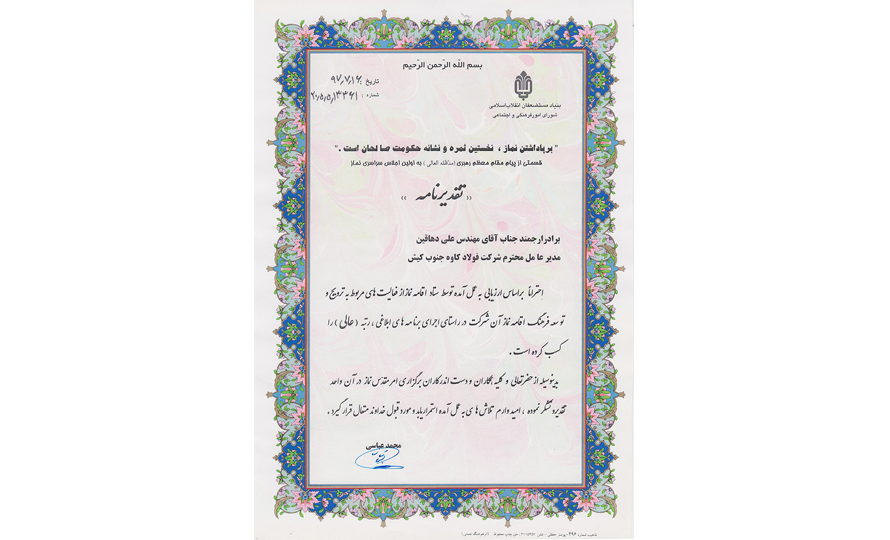 بسم الله الرّحمن الرّحیم
تاریخ : ۹۷٫۷٫۱۶
شماره :
بنیاد مستضعفان انقلاب اسلامی
شورای امور فرهنگی و اجتماعی
" برپاداشتن نماز ، نخستین ثمره و نشانه حکومت صالحان است . "
قسمتی از پیام مقام معظم رهبری (مدظله العالی) به اولین اجلاس سراسری نماز
« تقدیرنامه »
برادر ارجمند جناب آقای مهندس علی دهاقین
مدیر عامل محترم شرکت فولاد کاوه جنوب کیش
احتراماً براساس ارزیابی به عمل آمده توسط ستاد اقامه نماز از فعالیت های مربوط به ترویج و
توسعه فرهنگ اقامه نماز آن شرکت در راستای اجرای برنامه های ابلاغی ، رتبه (عالی) را
کسب کرده است .
بدینوسیله از حضرتعالی و کلیه همکاران و دست اندرکاران برگزاری امر مقدس نماز در آن واحد
تقدیر و تشکر نموده ، امیدوارم تلاش های به عمل آمده استمرار یابد و مورد قبول خداوند متعال قرار گیرد .
محمد عباسی